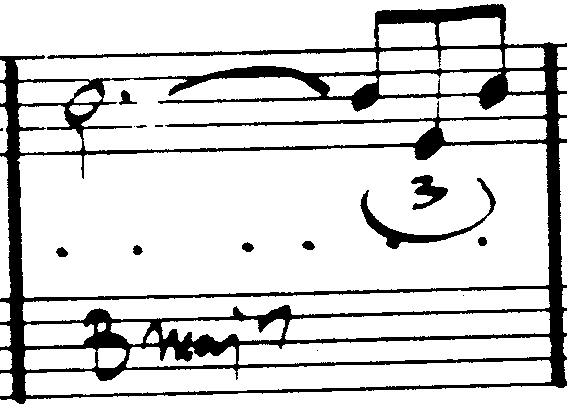 3
B maj7